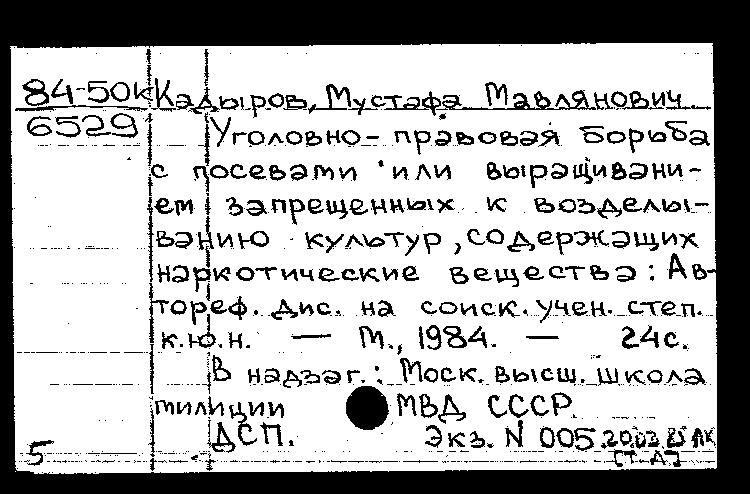 84-50к Кадыров, Мустафа Мавлянович
6529 Уголовно-правовая борьба
с посевами или выращивани-
ем запрещенных к возделы-
ванию культур, содержащих
наркотические вещества: Ав-
тореф. дис. на соиск. учен. степ.
к.ю.н. — М., 1984. — 24с.
В надзаг.: Моск. высш. школа
милиции МВД СССР
ДСП. Экз. N 005.
5